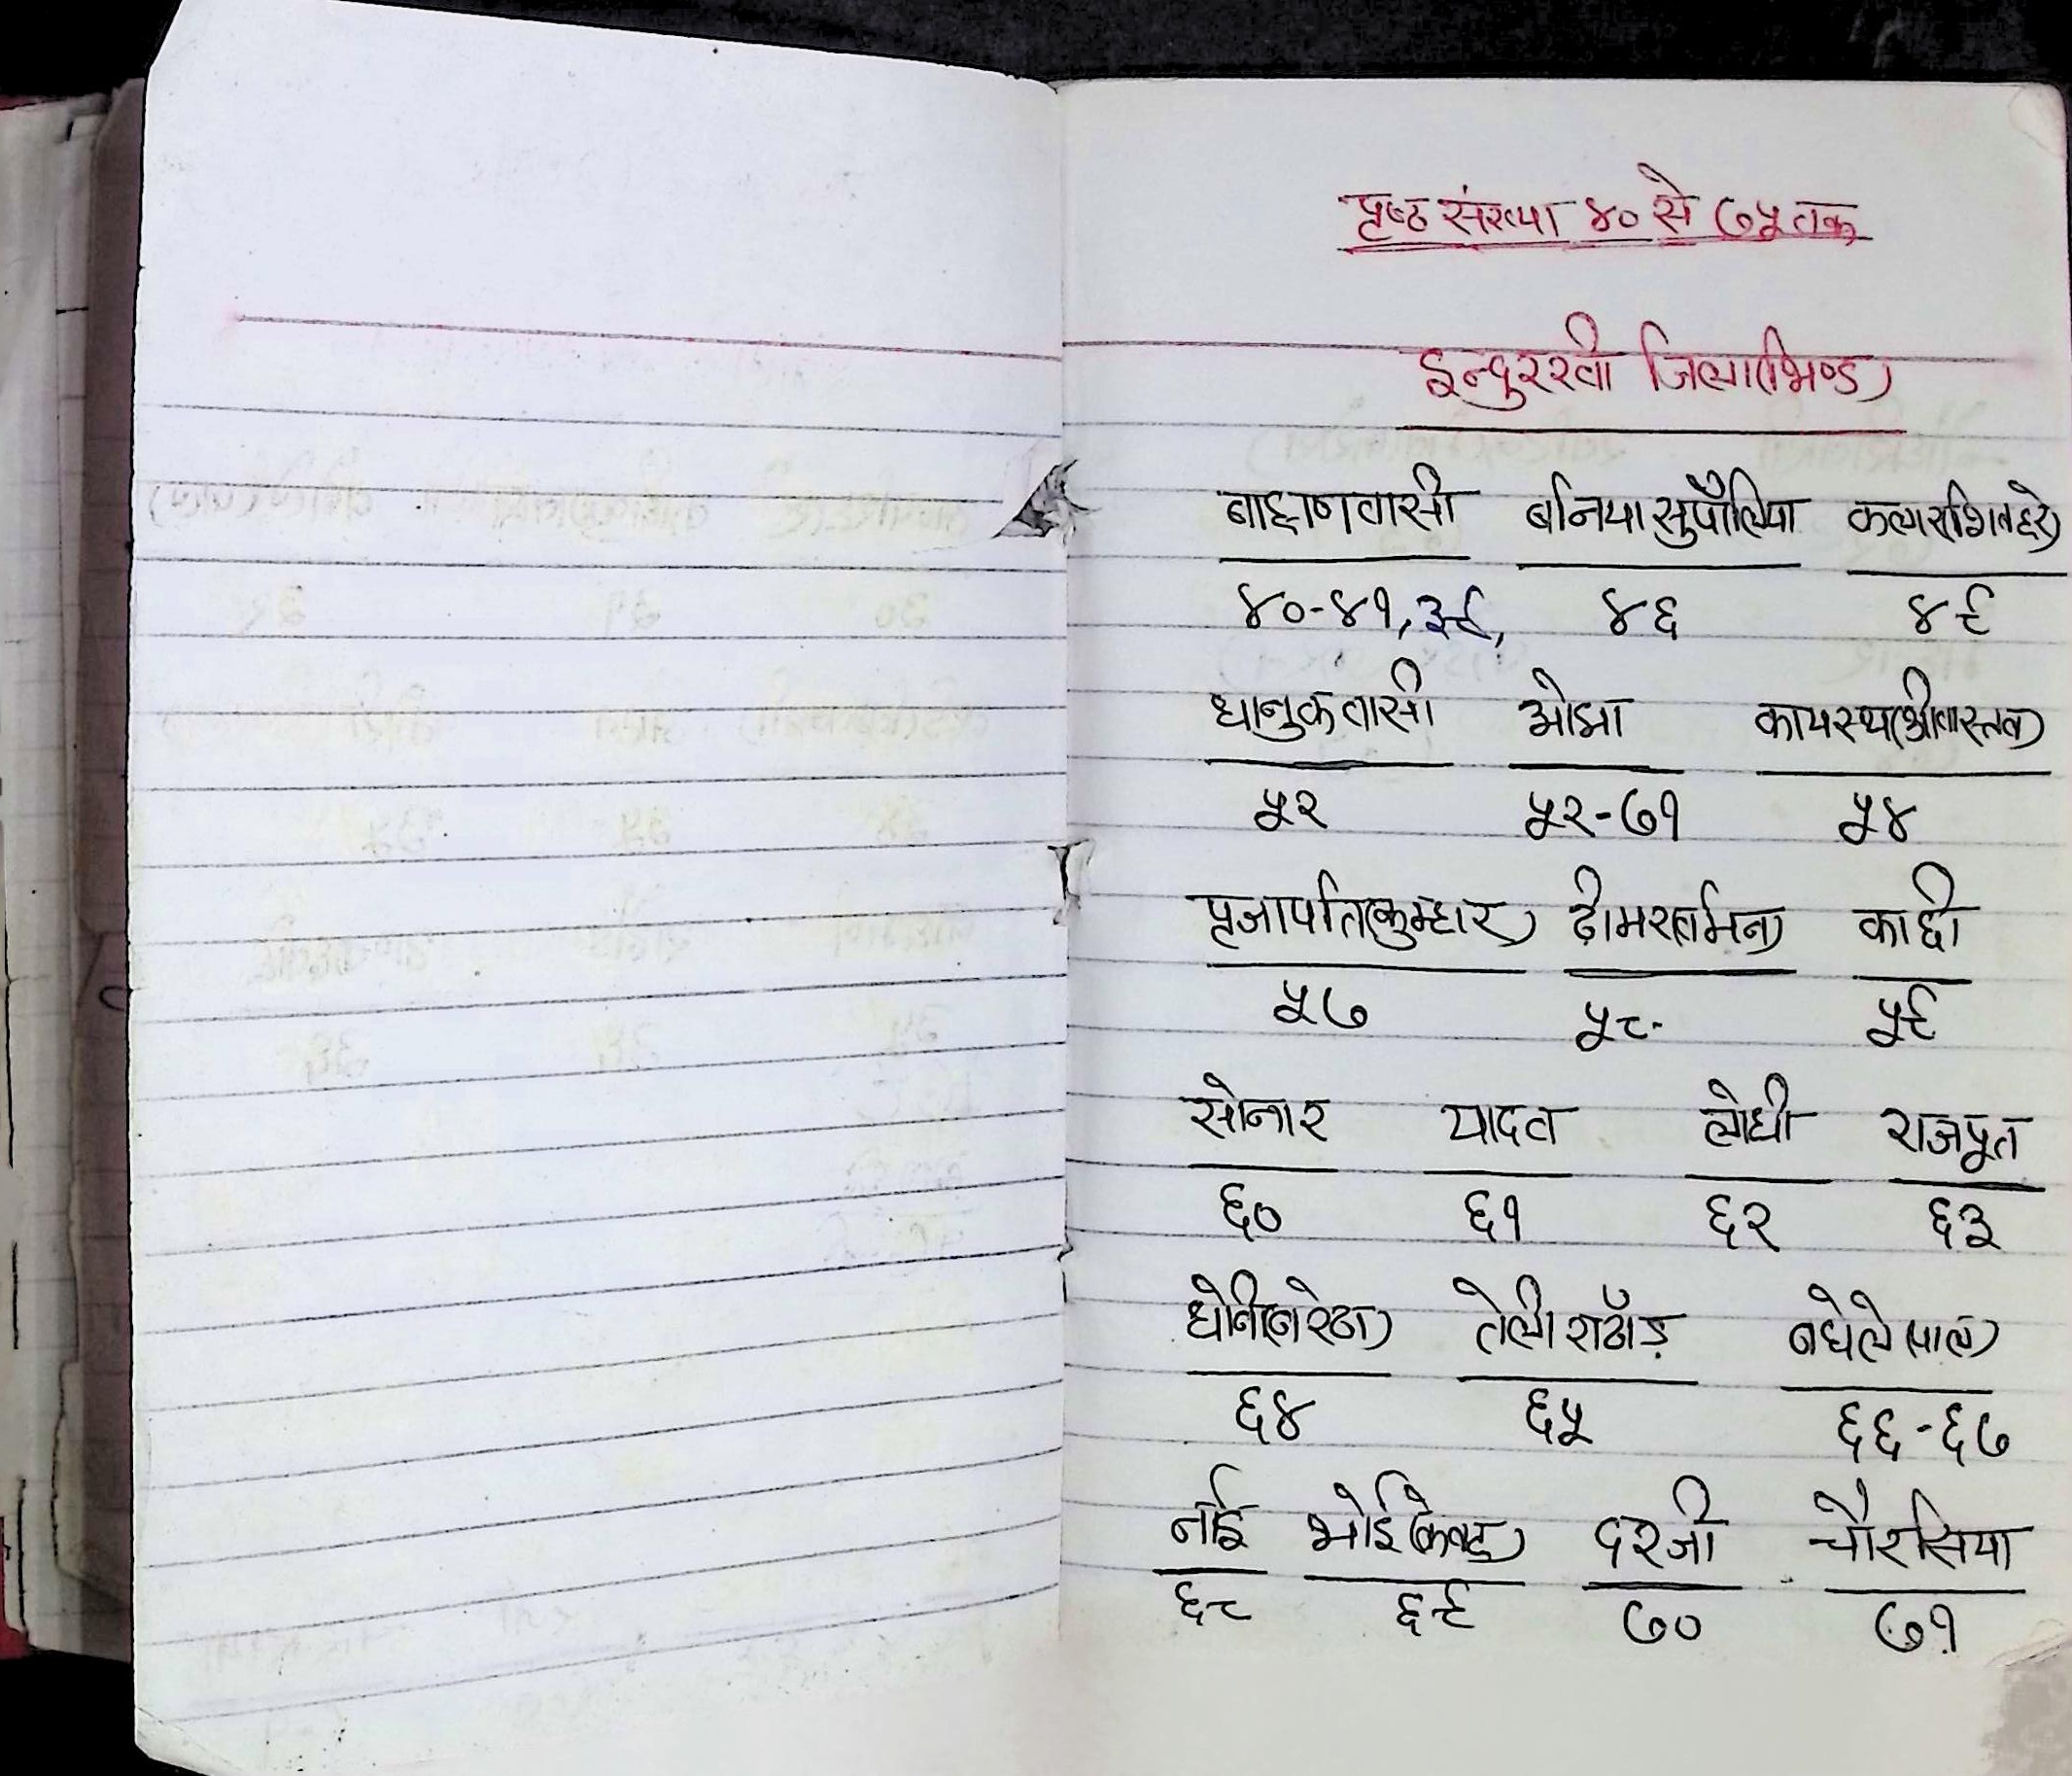 पृष्ठ संख्या ४० से ७५ तक
इन्दुरखी जिला(भिण्ड)
ब्राह्मणवासी बनिया सुपौलिया कलार(शिवहरे)
४०-४१, ३९, ४६ ४९
धानुकवासी ओझा कायस्थ(श्रीवास्तव)
५२ ५२-७१ ५४
प्रजापति(कुम्हार) ढीमर(वर्मन) काछी
५७ ५८ ५९
सोनार यादव लोधी राजपूत
६० ६१ ६२ ६३
धोबी(बरेठा) तेली राठौड़ बघेले(पाल)
६४ ६५ ६६-६७
नाई भोई(केवट) दरजी चौरसिया
६८ ६९ ७० ७१